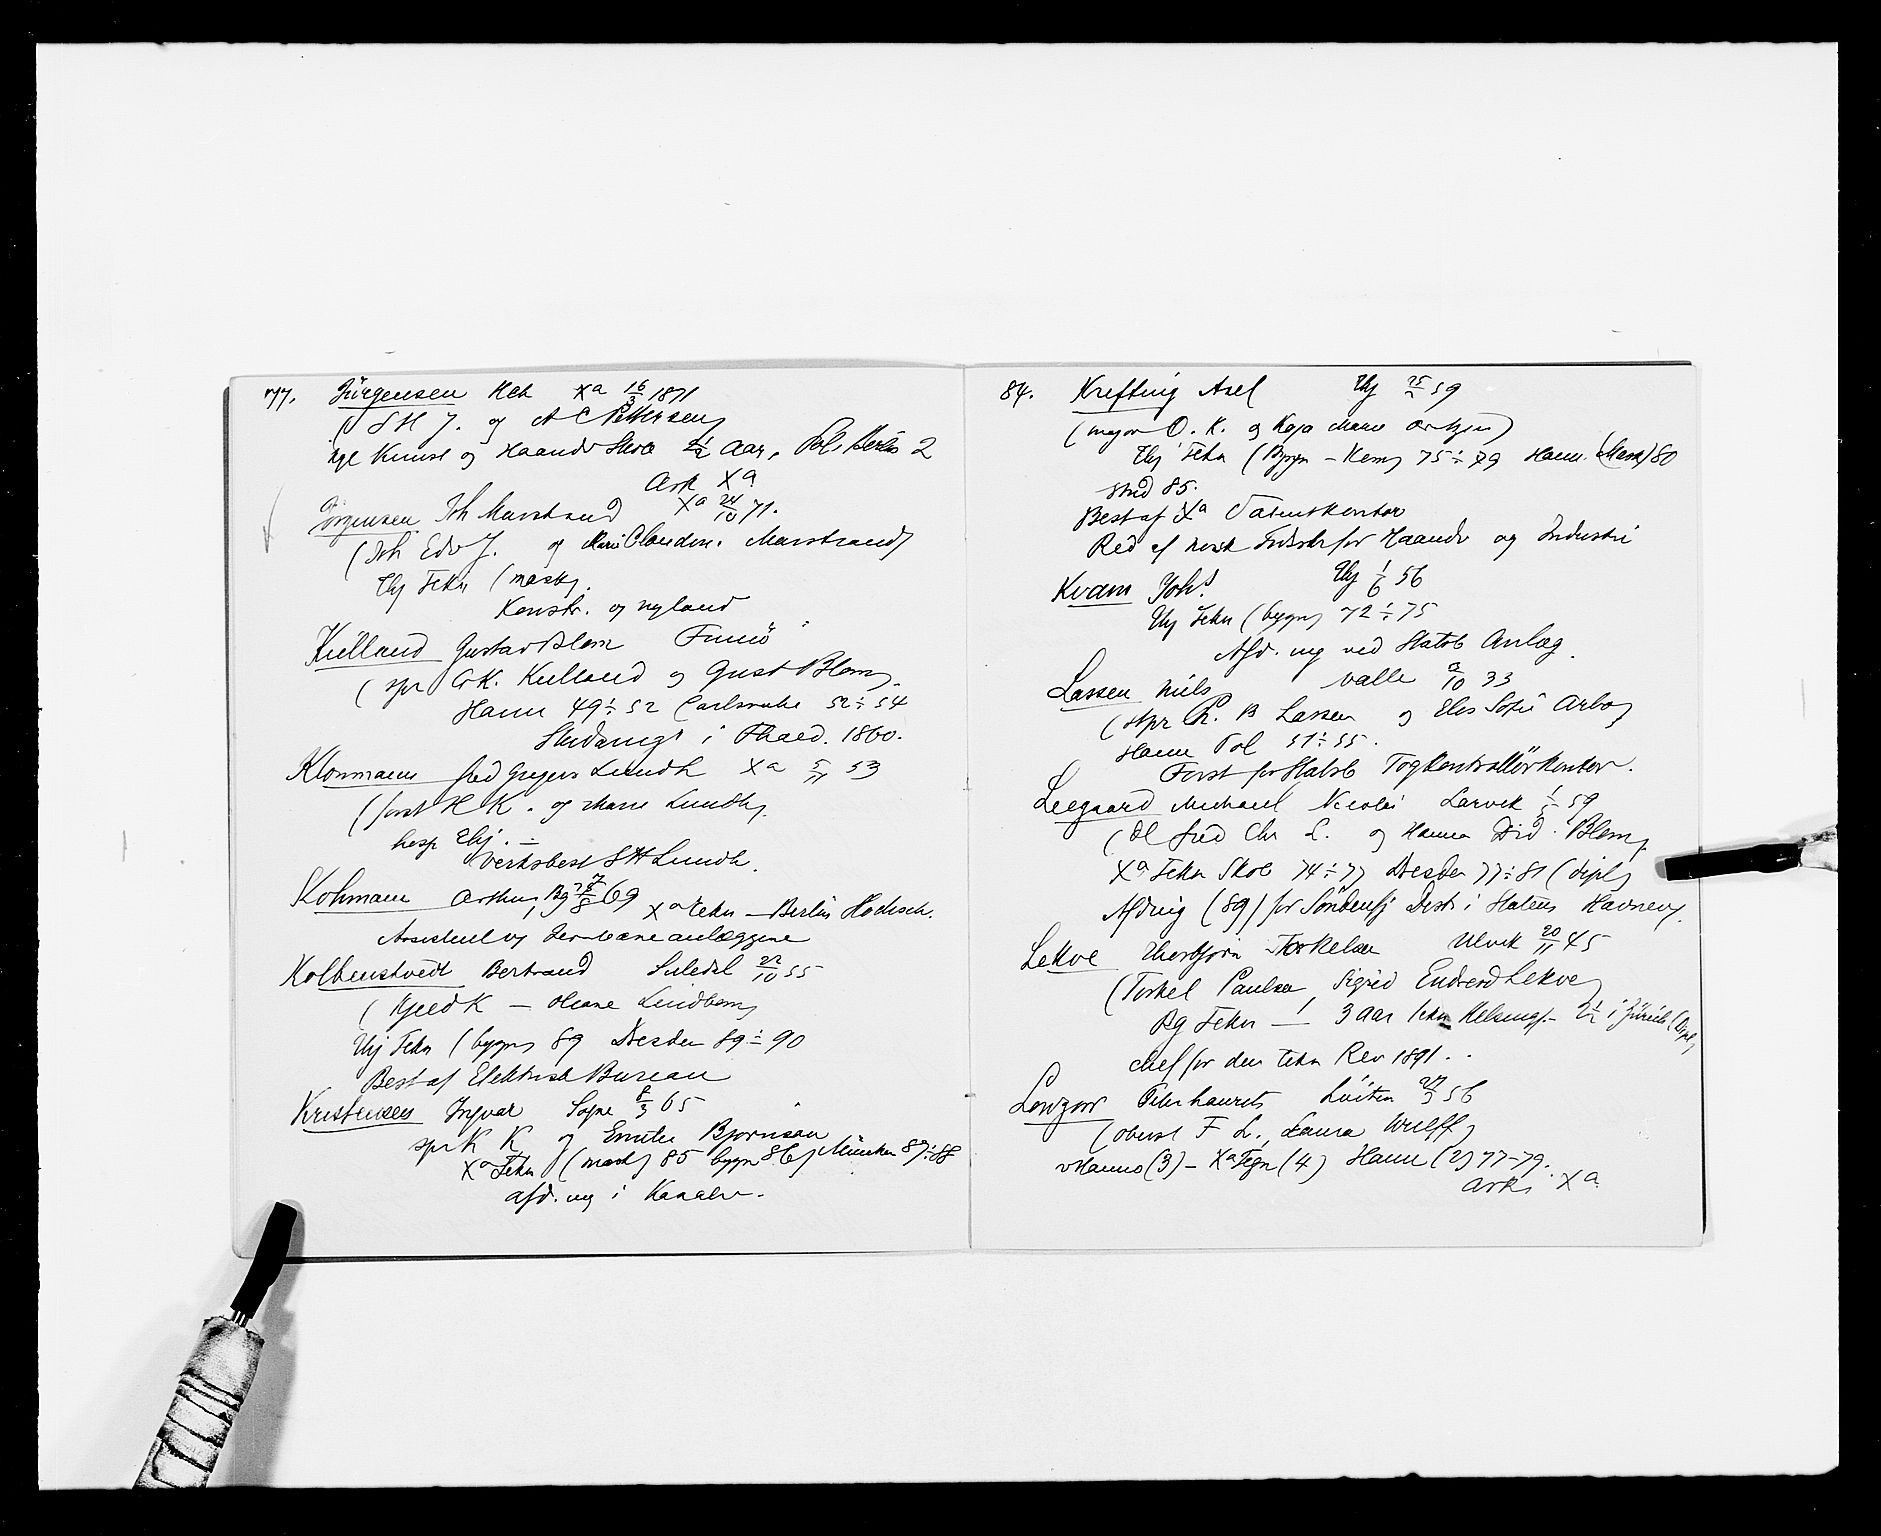 77. Jürgensen Hch Xa 16/3 1871
(S H J. og A C Pettersen)
kgl Kunst og Haandv Skole 2½ Aar, Pol. Berlin 2
Ark Xa
Jörgensen Joh Marstrand Xa 24/10 71.
(Joh Edv J. og Marie Claudine Marstrand)
Thj Tekn (mask)
Konstr. og nyland
Kielland Gustav Blom Finnö
(spr G K. Kielland og Gust Blom)
Hann 49÷52 Carlsruhe 52÷54
Stadsingr i Thrond. 1860.
Klonmann fred Gregers Lundh Xa 5/11 53
(forst H K. og Marie Lundh)
hosp Thj. ÷
Verksbest S H Lundh.
Kohmann Arthur, Bg 28/8 69 Xa tekn — Berlin Hochsch.
Assistent og Jernbaneanlæggene
Kolbenstvedt Bertrand Suledal 22/10 55
(Kjeld K — Oleane Lindberg)
Thj Tekn (bygn) 89 Dresden 89÷90
Best af Elektrisk Bureau
Kristensen Ingvar Sogne 8/3 65
spr K K og Emilie Bjornsen
Xa Tekn (mask) 85 bygn 86) München 87÷88
Afd. ing i Kanalv.
84. Krefting Axel Thj 25/2 59
(major O. K. og Kaja Marie Ørtzen)
Thj Tekn (Bygn – Kem) 75÷79 Hann. (Mask) 80
stud 85.
Best af Xa Patentkontor
Red af norsk Tidsskr for Haandv og Industri
Kvam Johs. Thj 1/6 56
Thj Tekn (bygn) 72÷75
Afd. ing ved Statsb Anlæg.
Lassen Niels Valle 9/10 33
(spr P. B Lassen og Elis Sofie Arbo)
Hann Pol 51÷55.
Forst for Statsb Togkontrollörkontor.
Leegaard Michael Nicolai Larvik 1/5 59
(Ol fred Chr L. og Hanna Did. Blom)
Xa Tekn Skole 74÷77 Dresden 77÷81 (dipl)
Afd ing (89) for Söndenfj Distr i Statens Havnev.
Lekve Thorbjörn Torkelsen Ulvik 20/11 45
(Torkel Paulsen, Sigrid Endresd Lekve)
Bg Tekn — 3 aar tekn Helsingf.– 2½ i Zürich (Dipl)
chef for den tekn Rev 1891.
Lowzow Peter Lauritz Löiten 27/3 56
(oberst F L., Laura Wulff)
Hanno (3) – Xa Tegn (4) Hann (2) 77–79.
Ark. Xa